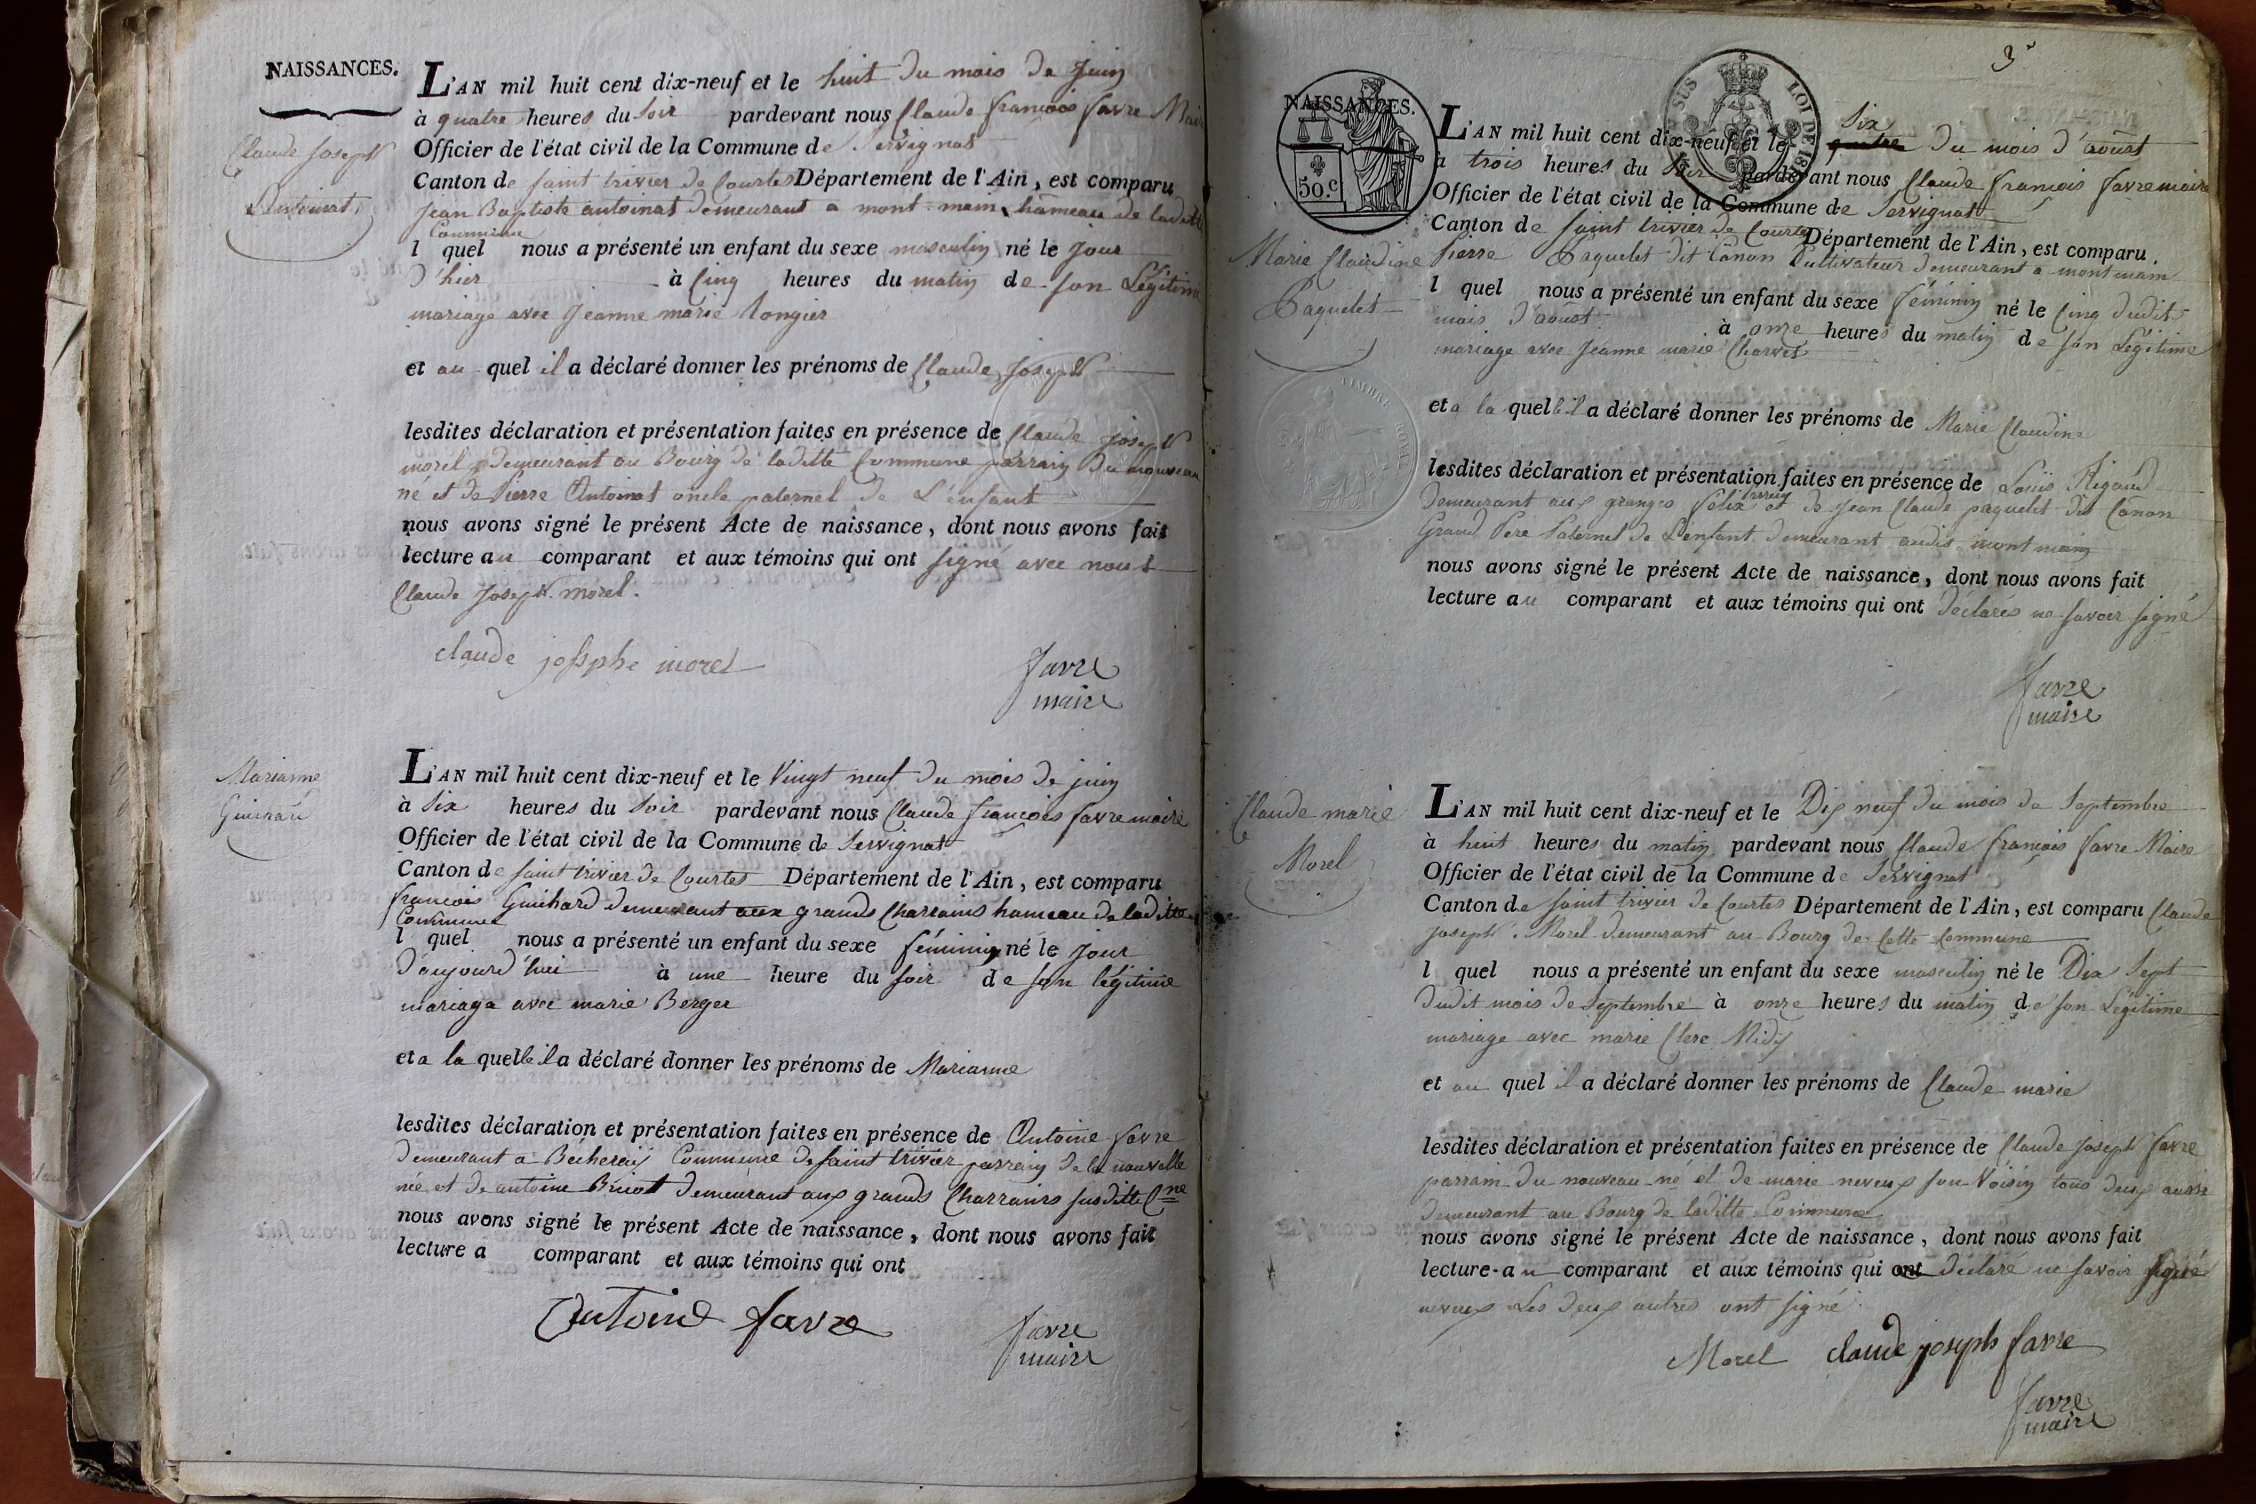 NAISSANCES.
L'AN mil huit cent dix-neuf et le huit du mois de Juin
à quatre heures du Soir pardevant nous Claude françois favre Maire
Officier de l'état civil de la Commune de Servignat
Canton de saint trivier de Courtes Département de l'Ain, est comparu
Jean Baptiste antoinat demeurant a mont-main hameau de laditte
Commune
l quel nous a présenté un enfant du sexe masculin né le jour
d'hier à Cinq heures du matin de son Légitime
mariage avec Jeanne marie
et au quel il a déclaré donner les prénoms de Claude Joseph
lesdites déclaration et présentation faites en présence de Claude Joseph
morel demeurant au Bourg de laditte Commune parrain du nouveau
né et de Pierre Antoinat oncle paternel de L'enfant
nous avons signé le présent Acte de naissance, dont nous avons fait
lecture au comparant et aux témoins qui ont signé avec nous
Claude Joseph morel.
claude josphe morel
favre
maire
Claude Joseph
Antoinat
Marianne
Guichard
L'AN mil huit cent dix-neuf et le Vingt neuf du mois de juin
à Six heures du Soir pardevant nous Claude françois favre maire
Officier de l'état civil de la Commune de Servignat
Canton de saint trivier de Courtes Département de l'Ain, est comparu
francois Guichard demeurant aux grands Charrains hameau de laditte
Commune
l quel nous a présenté un enfant du sexe féminin né le jour
d'aujourd'hui à une heure du soir de son légitime
mariage avec marie Berger
et a la quelle il a déclaré donner les prénoms de Marianne
lesdites déclaration et présentation faites en présence de Antoine favre
demeurant a Commune de saint trivier parrain de la nouvelle
née et de antoine demeurant aux grands Charrains susditte Cne
nous avons signé le présent Acte de naissance, dont nous avons fait
lecture a comparant et aux témoins qui ont
Antoine favre
favre
maire
3
NAISSANCES.
50.c
SUS LOI DE 18
TIMBRE ROYAL
L'AN mil huit cent dix-neuf et le six quatre du mois d'aoust
à trois heures du Soir pardevant nous Claude françois favre maire
Officier de l'état civil de la Commune de Servignat
Canton de saint trivier de Courtes Département de l'Ain, est comparu
Pierre Paquelet dit Canon Cultivateur demeurant a montmain
l quel nous a présenté un enfant du sexe féminin né le Cinq dudit
mois d'aoust à onze heures du matin de son Légitime
mariage avec Jeanne marie Charvet
et a la quelle il a déclaré donner les prénoms de Marie Claudine
lesdites déclaration et présentation faites en présence de Louis Rigaud
parrain
demeurant aux granges felix et de Jean Claude paquelet dit Canon
Grand Pere Paternel de L'enfant demeurant audit montmain
nous avons signé le présent Acte de naissance, dont nous avons fait
lecture au comparant et aux témoins qui ont déclarés ne savoir signé
favre
maire
Marie Claudine
Paquelet
Claude marie
Morel
L'AN mil huit cent dix-neuf et le Dix neuf du mois de Septembre
à huit heures du matin pardevant nous Claude françois favre Maire
Officier de l'état civil de la Commune de Servignat
Canton de saint trivier de Courtes Département de l'Ain, est comparu Claude
joseph Morel demeurant au Bourg de Cette Commune
l quel nous a présenté un enfant du sexe masculin né le Dix Sept
dudit mois de Septembre à onze heures du matin de son Légitime
mariage avec marie Clerc Midy
et au quel il a déclaré donner les prénoms de Claude marie
lesdites déclaration et présentation faites en présence de Claude Joseph favre
parrain du nouveau né et de marie neveux son Voisin tous deux aussi
demeurant au Bourg de laditte Commune
nous avons signé le présent Acte de naissance, dont nous avons fait
lecture au comparant et aux témoins qui ont déclaré ne savoir signé
neveux Les deux autres ont signé
Morel claude joseph favre
favre
maire